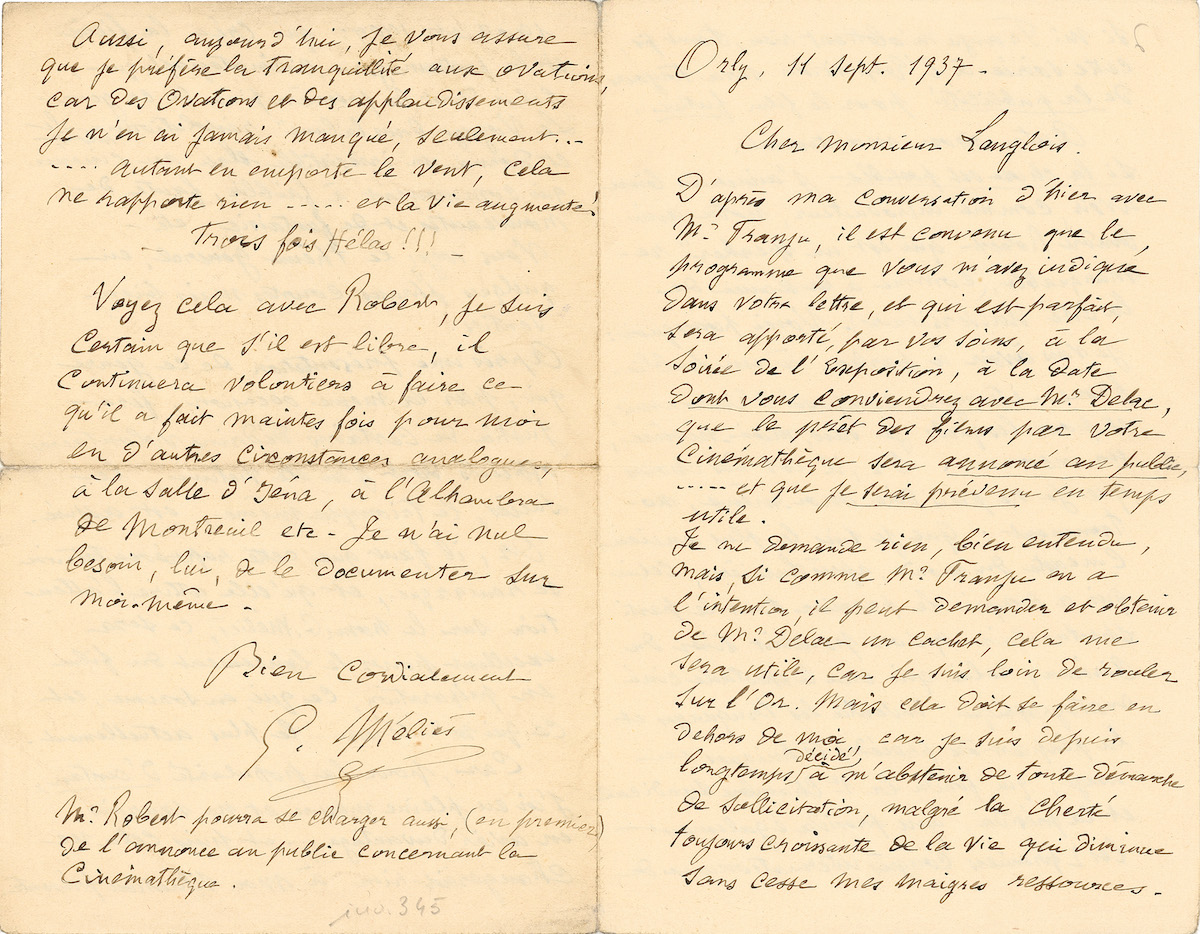 Orly, 11 Sept. 1937.
Cher Monsieur Langlois.
D'après ma conversation d'hier avec
Mr. Franju, il est convenu que le
programme que vous m'avez indiqué
dans votre lettre, et qui est parfait,
sera apporté, par vos soins, à la
Soirée de l'Exposition, à la date
dont vous conviendrez avec Mr. Delac,
que le prêt des films par votre
Cinémathèque sera annoncé au public,
..... et que je serai prévenu en temps
utile.
Je ne demande rien, bien entendu,
mais, si comme Mr. Franju en a
l'intention, il peut demander et obtenir
de Mr. Delac un cachet, cela me
sera utile, car je suis loin de rouler
sur l'Or. Mais cela doit se faire en
dehors de moi, car je suis depuis
longtemps décidé à m'abstenir de toute démarche
de sollicitation, malgré la cherté
toujours croissante de la vie qui diminue
sans cesse mes maigres ressources.
Aussi, aujourd'hui, je vous assure
que je préfère la tranquillité aux ovations,
car des Ovations et des applaudissements
je n'en ai jamais manqué, seulement...
.... autant en emporte le vent, cela
ne rapporte rien ..... et la vie augmente!
Trois fois Hélas!!!
Voyez cela avec Robert, je suis
certain que s'il est libre, il
continuera volontiers à faire ce
qu'il a fait maintes fois pour moi
en d'autres circonstances analogues,
à la Salle d'Iéna, à l'Alhambra
de Montreuil etc- Je n'ai nul
besoin, lui, de le documenter sur
moi-même -
Bien Cordialement
G. Méliès
Mr. Robert pourra se charger aussi, (en premier)
de l'annonce au public concernant la
Cinémathèque.
inv. 345